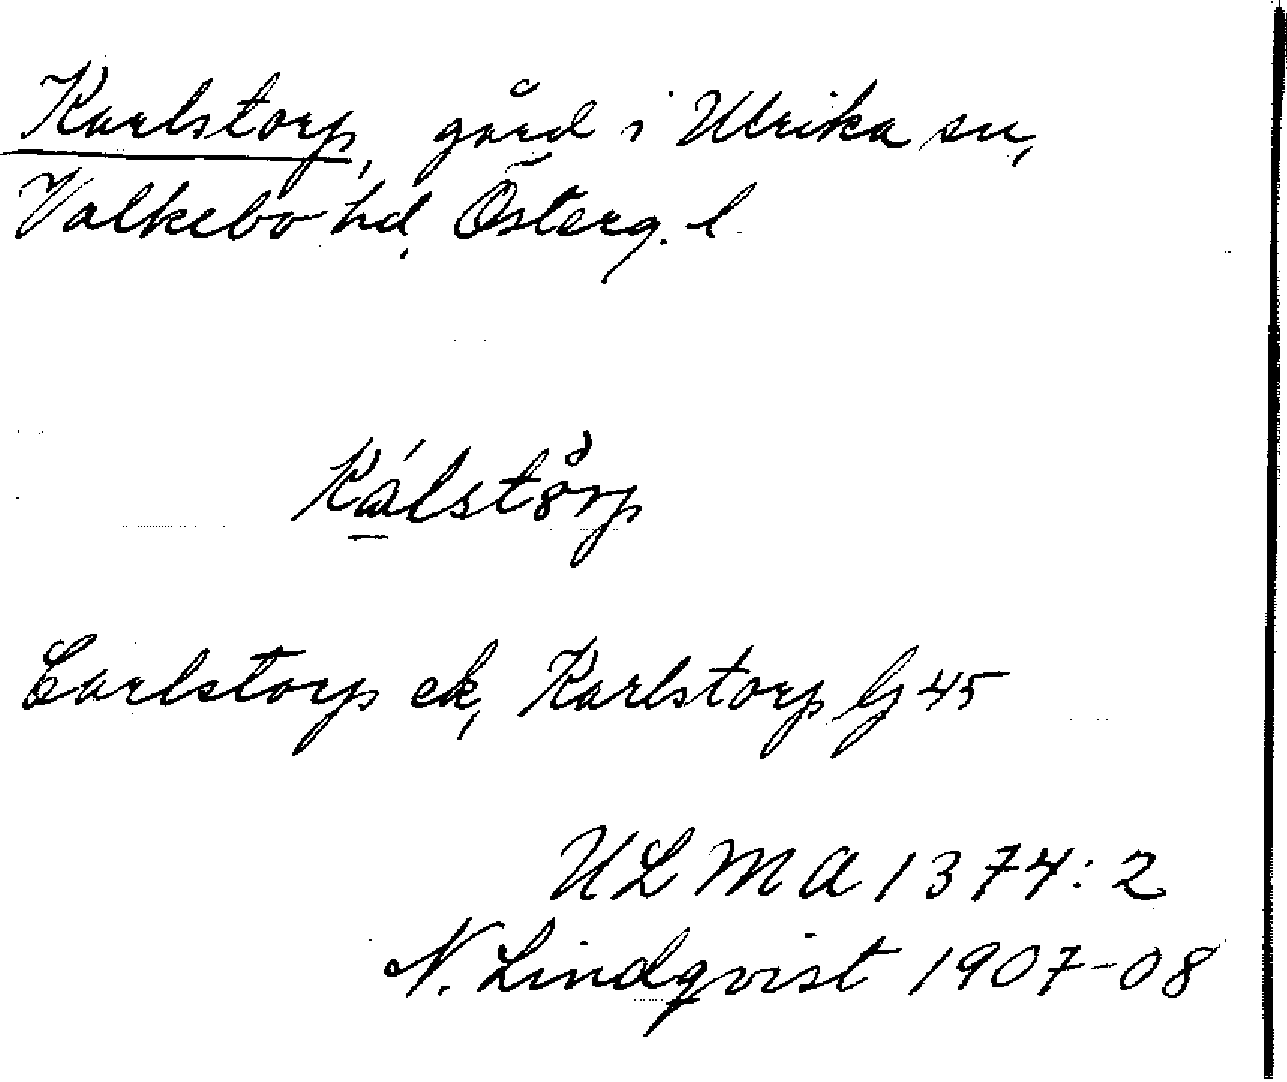 Karlstorp, gård i Ulrika sn,
Valkebo hd, Österg. l
Kálstörp
Carlstorp ek, Karlstorp lj 45
ULMA 1374:2
N. Lindqvist 1907-08